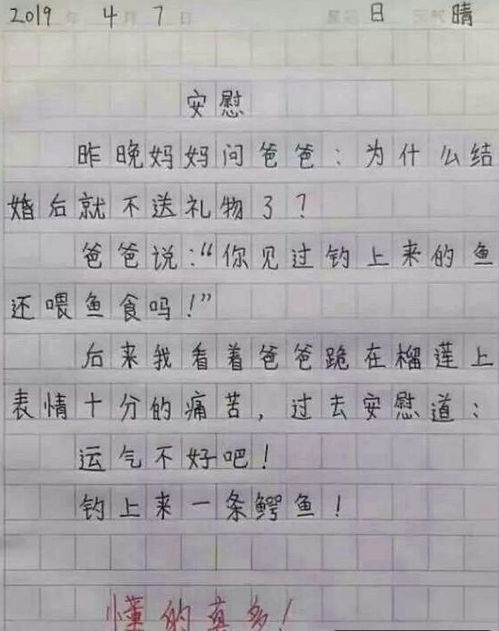 2019年 4月 7日 星期日 天气晴
安慰
昨晚妈妈问爸爸：为什么结
婚后就不送礼物了？
爸爸说：“你见过钓上来的鱼
还喂鱼食吗！”
后来我看着爸爸跪在榴莲上
表情十分的痛苦，过去安慰道：
运气不好吧！
钓上来一条鳄鱼！
懂的真多！